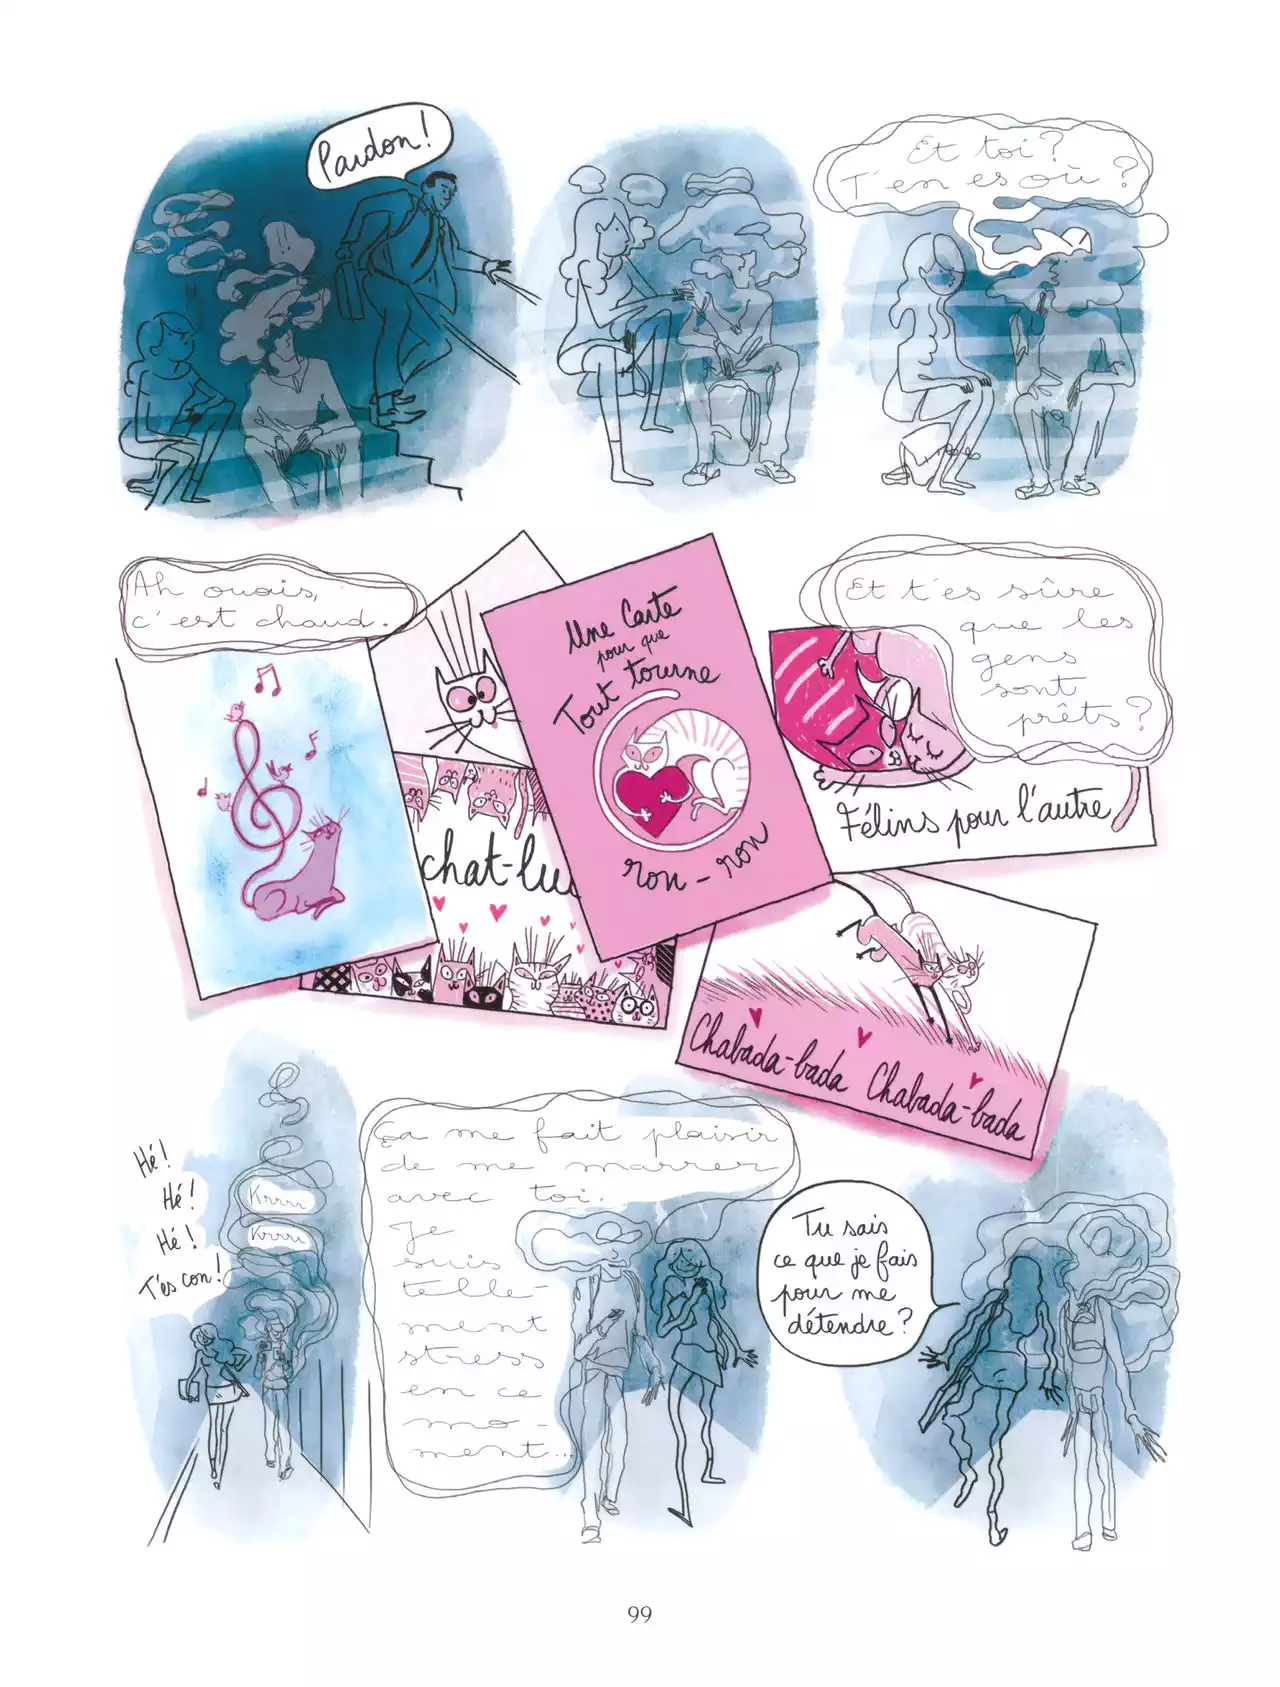 Pardon !
Et toi ?
T'en es où ?
Ah ouais,
c'est chaud.
Une Carte
pour que
Tout tourne
ron-ron
chat-lu
Et t'es sûre
que les
gens
sont
prêts ?
Félins pour l'autre
Chabada-bada Chabada-bada
Hé !
Hé !
Hé !
T'es con !
Krrrr
Krrrr
Ça me fait plaisir
de me marrer
avec toi.
Je
suis
telle-
ment
stress
en ce
mo-
ment...
Tu sais
ce que je fais
pour me
détendre ?
99